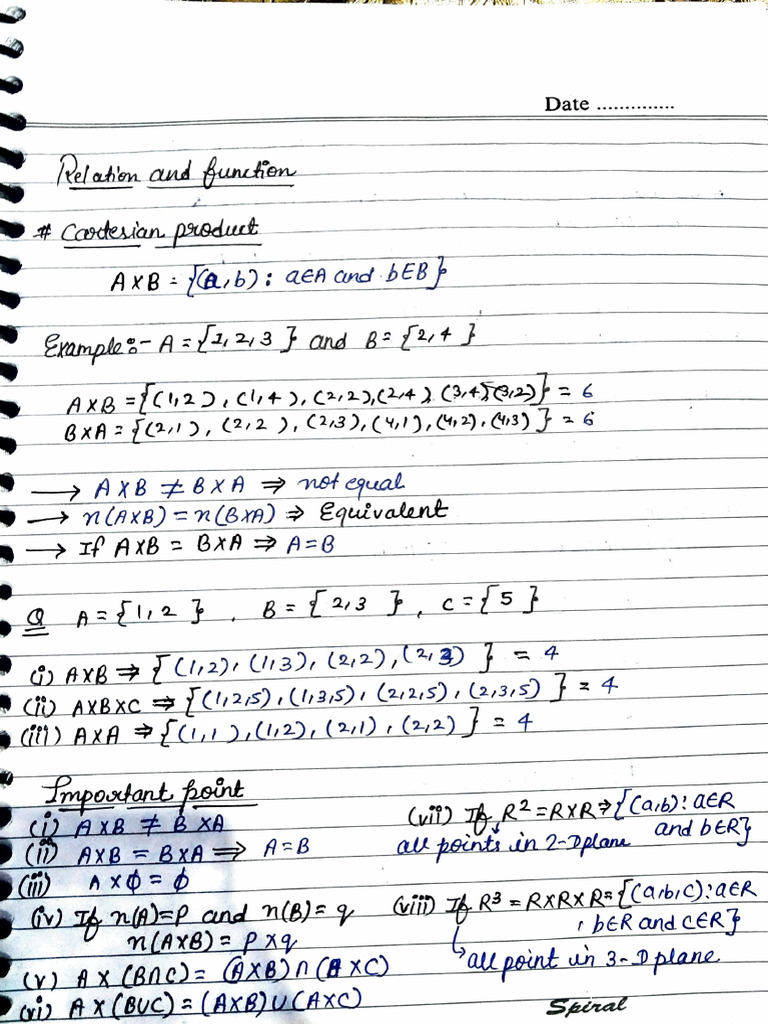 Date ..............
Relation and function
# Cartesian product
A×B = {(a,b) : a∈A and b∈B}
Example:- A = {1,2,3} and B = {2,4}
A×B = {(1,2), (1,4), (2,2), (2,4), (3,4), (3,2)} = 6
B×A = {(2,1), (2,2), (2,3), (4,1), (4,2), (4,3)} = 6
→ A×B ≠ B×A ⇒ not equal
→ n(A×B) = n(B×A) ⇒ Equivalent
→ If A×B = B×A ⇒ A=B
Q A = {1,2}, B = {2,3}, C = {5}
(i) A×B ⇒ {(1,2), (1,3), (2,2), (2,3)} = 4
(ii) A×B×C ⇒ {(1,2,5), (1,3,5), (2,2,5), (2,3,5)} = 4
(iii) A×A ⇒ {(1,1), (1,2), (2,1), (2,2)} = 4
Important point
(i) A×B ≠ B×A
(ii) A×B = B×A ⇒ A=B
(iii) A×ϕ = ϕ
(iv) If n(A)=p and n(B)=q
n(A×B) = p×q
(v) A×(B∩C) = (A×B)∩(A×C)
(vi) A×(B∪C) = (A×B)∪(A×C)
(vii) If R² = R×R ⇒ {(a,b) : a∈R
and b∈R}
all points in 2-D plane
(viii) If R³ = R×R×R = {(a,b,c) : a∈R
, b∈R and c∈R}
↳ all point in 3-D plane
Spiral